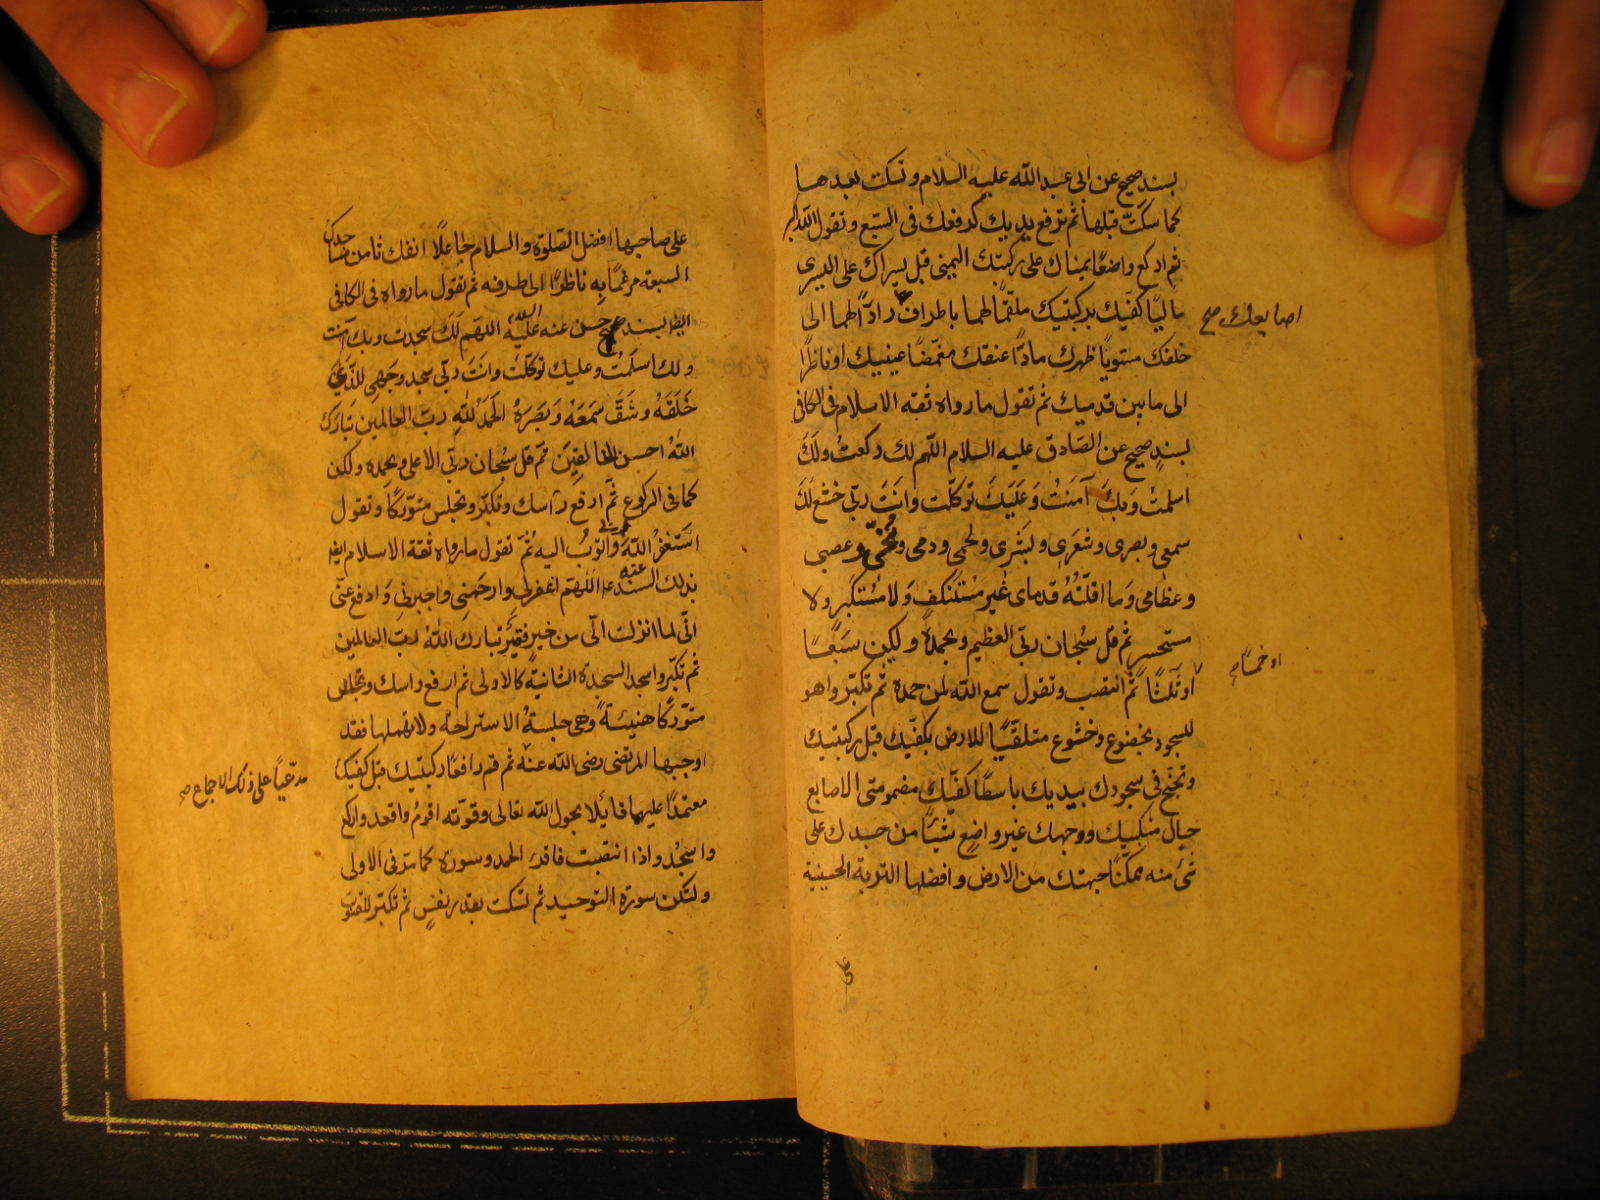 بسند صحيح عن ابى عبد الله عليه السلام و تسكت بعدها
كما سكتّ قبلها ثم ترفع يديك كرفعك فى السّبع و تقول الله اكبر
ثم اركع واضعًا يمناك على ركبتك اليمنى قبل يسراك على اليسرى
ماليًا كفّيك بركبتيك ملقّمًا لهما باطراف رادًّا لهما الى
اصابعك صح
خلفك مستويًا ظهرك مادًّا عنقك مغمّضًا عينيك او ناظرًا
الى ما بين قدميك ثم تقول ما رواه ثقة الاسلام فى الكافى
بسندٍ صحيح عن الصّادق عليه السلام اللّهم لك ركعتُ ولَكَ
اسلمتُ وَبِكَ آمَنتُ وَعَلَيكَ توكّلت وانتَ ربّى خشع لَكَ
سمعى وبصرى وشعرى وبشرى ولحمى ودمى ومُخّى وعصبى
وعظامى وَما اقلّتْهُ قدماى غير مُسْتَنكفٍ وَلا مُسْتكبرٍ ولا
مستحسرٍ ثم قل سُبحان ربّى العظيم وبحمده وليكن سَبْعًا
او خمسًا صح
اوثَلٰثًا ثُمَّ انتصب وتقول سمع الله لمن حمده ثم تكبّر واهو
للسجود بخضوع وخشوع متلقّيًا للارض بكفّيك قبل ركبتيك
وتجنّح فى سجودك بيديك باسطًا كفّيك مضمومتى الاصابع
حيال منكبيك ووجهك غير واضعٍ شيئًا من جسدك على
شئ منه ممكّنًا جبهتك من الارض وافضلها التربة الحسينية
على
على صاحبها افضل الصّلوة والسلام جاعلًا انفك ثامن مساجدك
السبعة مرغمًا به ناظرًا الى طرفه ثم تقول ما رواه فى الكافى
ايضا بسند حسن عنه عليه السلام اللهمّ لَكَ سجدت وبك آمنت
ولك اسلَمْتُ وعليك توكّلتُ وانتَ ربّى سجد وجهى للَّذى
خَلَقَهُ وشقّ سَمعَهُ وَبَصَرَهُ الحَمدُ للّٰهِ ربّ العالمين تَبارَك
اللهُ احسن الخالقينَ ثمّ قل سُبحان ربّى الاعلى وبحمده وليكن
كما فى الركوع ثمّ ارفع رأسك وتكبّر وتجلس متورّكًا وتقول
اَستغفرُ اللّٰهَ ربّى واتوبُ اليه ثُمّ تقول ما رواه ثقة الاسلام ايضا
بذلك السند عنه اللّٰهمّ اغفر لى وارحمنى واجبرنى وَادفع عنّى
انّى لما انزلت الىّ من خيرٍ فقيرٌ تبارك اللهُ ربّ العالمين
ثم تكبّر واسجد السجدة الثانية كالاولى ثم ارفع راسك وتجلس
متورّكًا هنيئةً وهى جلسةُ الاستراحة ولا تهملها فقد
اوجبها المرتضى رضى الله عنه ثم قم رافعًا ركبتيك قبل كفيك
مدّعيًا على ذلك الاجماع صح
معتمدًا عليهما قائلًا بحول الله تعالى وقوّته اقومُ واقعد واركع
واسجُد واذا انتصبت فاقرء الحمد وسورة كما مرّ فى الاولى
ولتكن سورة التوحيد ثم تسكت بقدر نفسٍ ثم تكبّر للقنوت